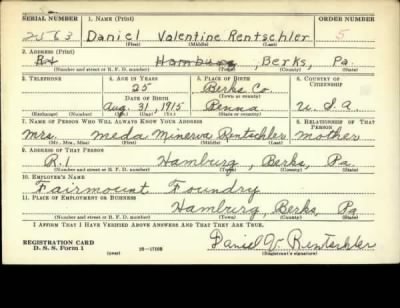 SERIAL NUMBER 1. NAME (Print) ORDER NUMBER
Daniel Valentine Rentschler 5
(First) (Middle) (Last)
2. ADDRESS (Print)
R.1 Hamburg, Berks, Pa.
(Number and street or R. F. D. number) (Town) (County) (State)
3. TELEPHONE 4. AGE IN YEARS 5. PLACE OF BIRTH 6. COUNTRY OF CITIZENSHIP
25 Berks Co.
DATE OF BIRTH (Town or county)
Aug. 31, 1915 Penna U.S.A.
(Exchange) (Number) (Mo.) (Day) (Yr.) (State or country)
7. NAME OF PERSON WHO WILL ALWAYS KNOW YOUR ADDRESS 8. RELATIONSHIP OF THAT PERSON
Mrs. Meda Minerva Rentschler Mother
(Mr., Mrs., Miss) (First) (Middle) (Last)
9. ADDRESS OF THAT PERSON
R.1 Hamburg, Berks, Pa.
(Number and street or R. F. D. number) (Town) (County) (State)
10. EMPLOYER'S NAME
Fairmount Foundry
11. PLACE OF EMPLOYMENT OR BUSINESS
Hamburg, Berks, Pa
(Number and street or R. F. D. number) (Town) (County) (State)
I AFFIRM THAT I HAVE VERIFIED ABOVE ANSWERS AND THAT THEY ARE TRUE.
REGISTRATION CARD
D. S. S. Form 1 (over) Daniel V. Rentschler
(Registrant's signature)